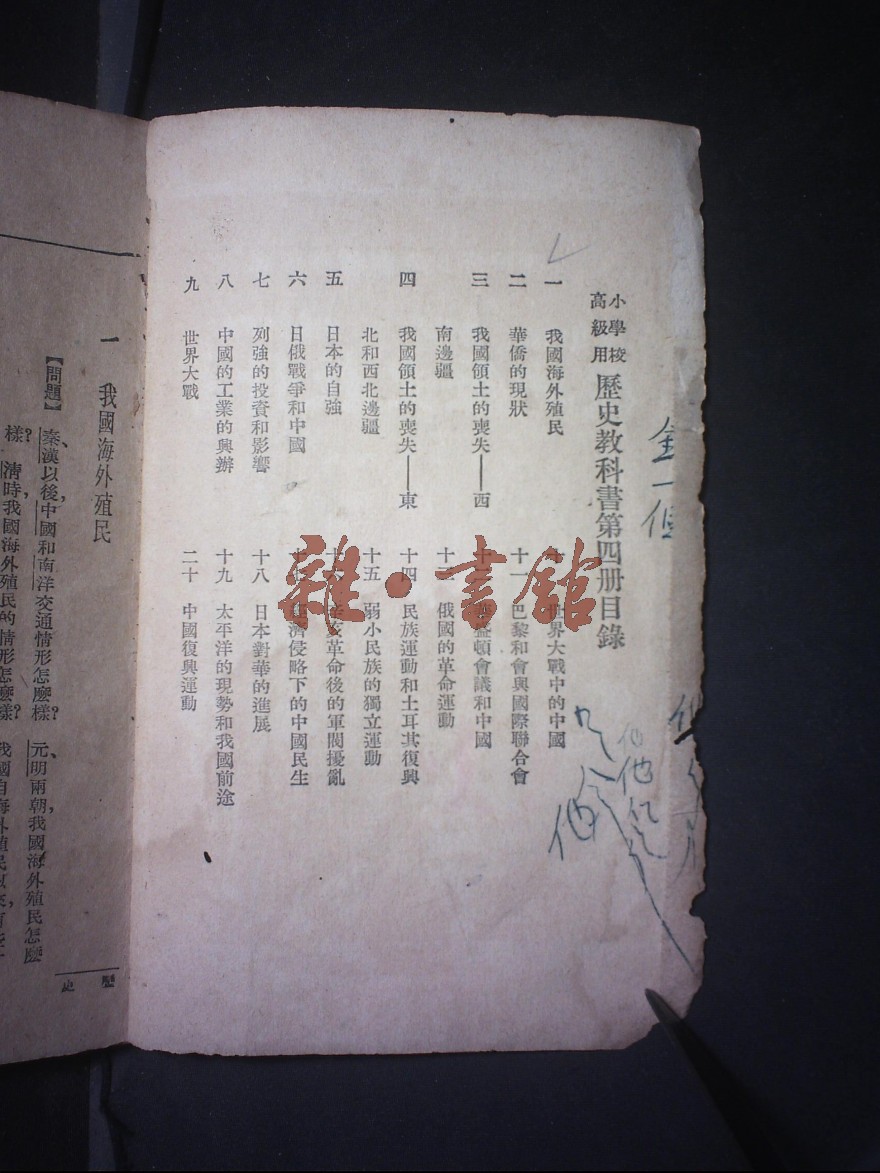 小學校高級用 歷史教科書第四册目錄
一 我國海外殖民
二 華僑的現狀
三 我國領土的喪失——西
南邊疆
四 我國領土的喪失——東
北和西北邊疆
五 日本的自強
六 日俄戰爭和中國
七 列強的投資和影響
八 中國的工業的興辦
九 世界大戰
十 世界大戰中的中國
十一 巴黎和會與國際聯合會
十二 華盛頓會議和中國
十三 俄國的革命運動
十四 民族運動和土耳其復興
十五 弱小民族的獨立運動
十六 辛亥革命後的軍閥擾亂
十七 經濟侵略下的中國民生
十八 日本對華的進展
十九 太平洋的現勢和我國前途
二十 中國復興運動
雜·書館
他
他
一 我國海外殖民
【問題】 秦漢以後,中國和南洋交通情形怎麼樣? 元明兩朝,我國海外殖民怎麼
樣? 清時,我國海外殖民的情形怎麼樣?
歷史